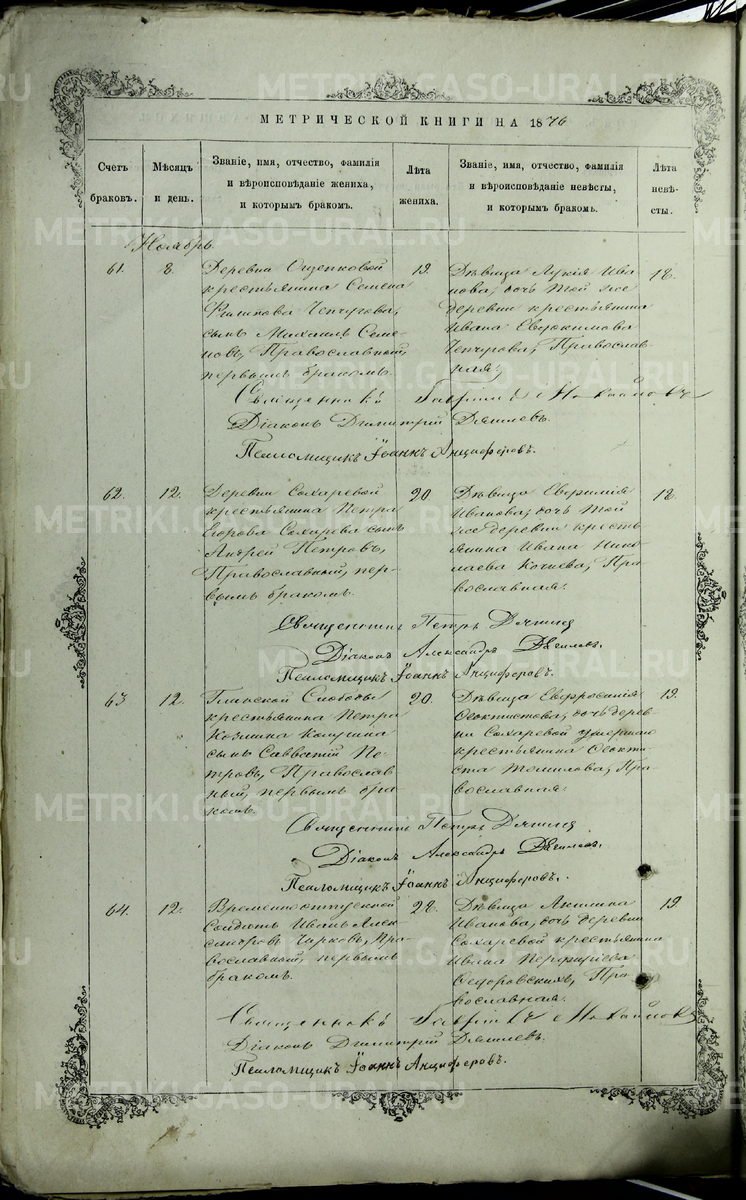 МЕТРИЧЕСКОЙ КНИГИ НА 1876
Счетъ браковъ.
Мѣсяцъ и день.
Званіе, имя, отчество, фамилія
и вѣроисповѣданіе жениха,
и которымъ бракомъ.
Лѣта жениха.
Званіе, имя, отчество, фамилія
и вѣроисповѣданіе невѣсты,
и которымъ бракомъ.
Лѣта невѣсты.
Ноябрь
61. 8.
Деревни Ощепковой
крестьянина Семена
Филипова Чепчугова,
сынъ Михаилъ Семе-
новъ, Православный,
первымъ бракомъ
19.
Дѣвица Лукія Ива-
нова, дочь той же
деревни крестьянина
Ивана Евдокимова
Чепчугова, Православ-
ная;
18.
Священникъ Гавріилъ
Діаконъ Димитрій
Псаломщикъ Іоаннъ Анциферовъ.
62. 12.
Деревни Сохаревой
крестьянина Петра
Егорова Сохарева сынъ
Андрей Петровъ,
Православный, пер-
вымъ бракомъ.
20
Дѣвица Евфимія
Иванова, дочь той
же деревни кресть-
янина Ивана Нико-
лаева Кочнева, Пра-
вославная:
18.
Священникъ Петръ
Діаконъ Александръ
Псаломщикъ Іоаннъ Анциферовъ.
63 12.
Слободы
крестьянина Петра
Козмина
сынъ Савватій Пе-
тровъ, Православ
ный, первымъ бра-
комъ.
20.
Дѣвица Евфросинія
Ѳеоктистова, дочь дерев-
ни Сохаревой умершаго
крестьянина Ѳеокти-
ста Томилова, Пра-
вославная:
19.
Священникъ Петръ
Діаконъ Александръ
Псаломщикъ Іоаннъ Анциферовъ.
64. 12.
Временноотпускной
Солдатъ Иванъ Алек-
сандровъ Чарковъ, Пра-
вославный, первымъ
бракомъ.
28.
Дѣвица Акилина
Иванова, дочь деревни
Сохаревой крестьянина
Ивана Перфирьева
Ѳедоровскихъ, Пра-
вославная.
19
Священникъ Гавріилъ
Діаконъ Димитрій
Псаломщикъ Іоаннъ Анциферовъ.
METRIKI.GASO-URAL.RU